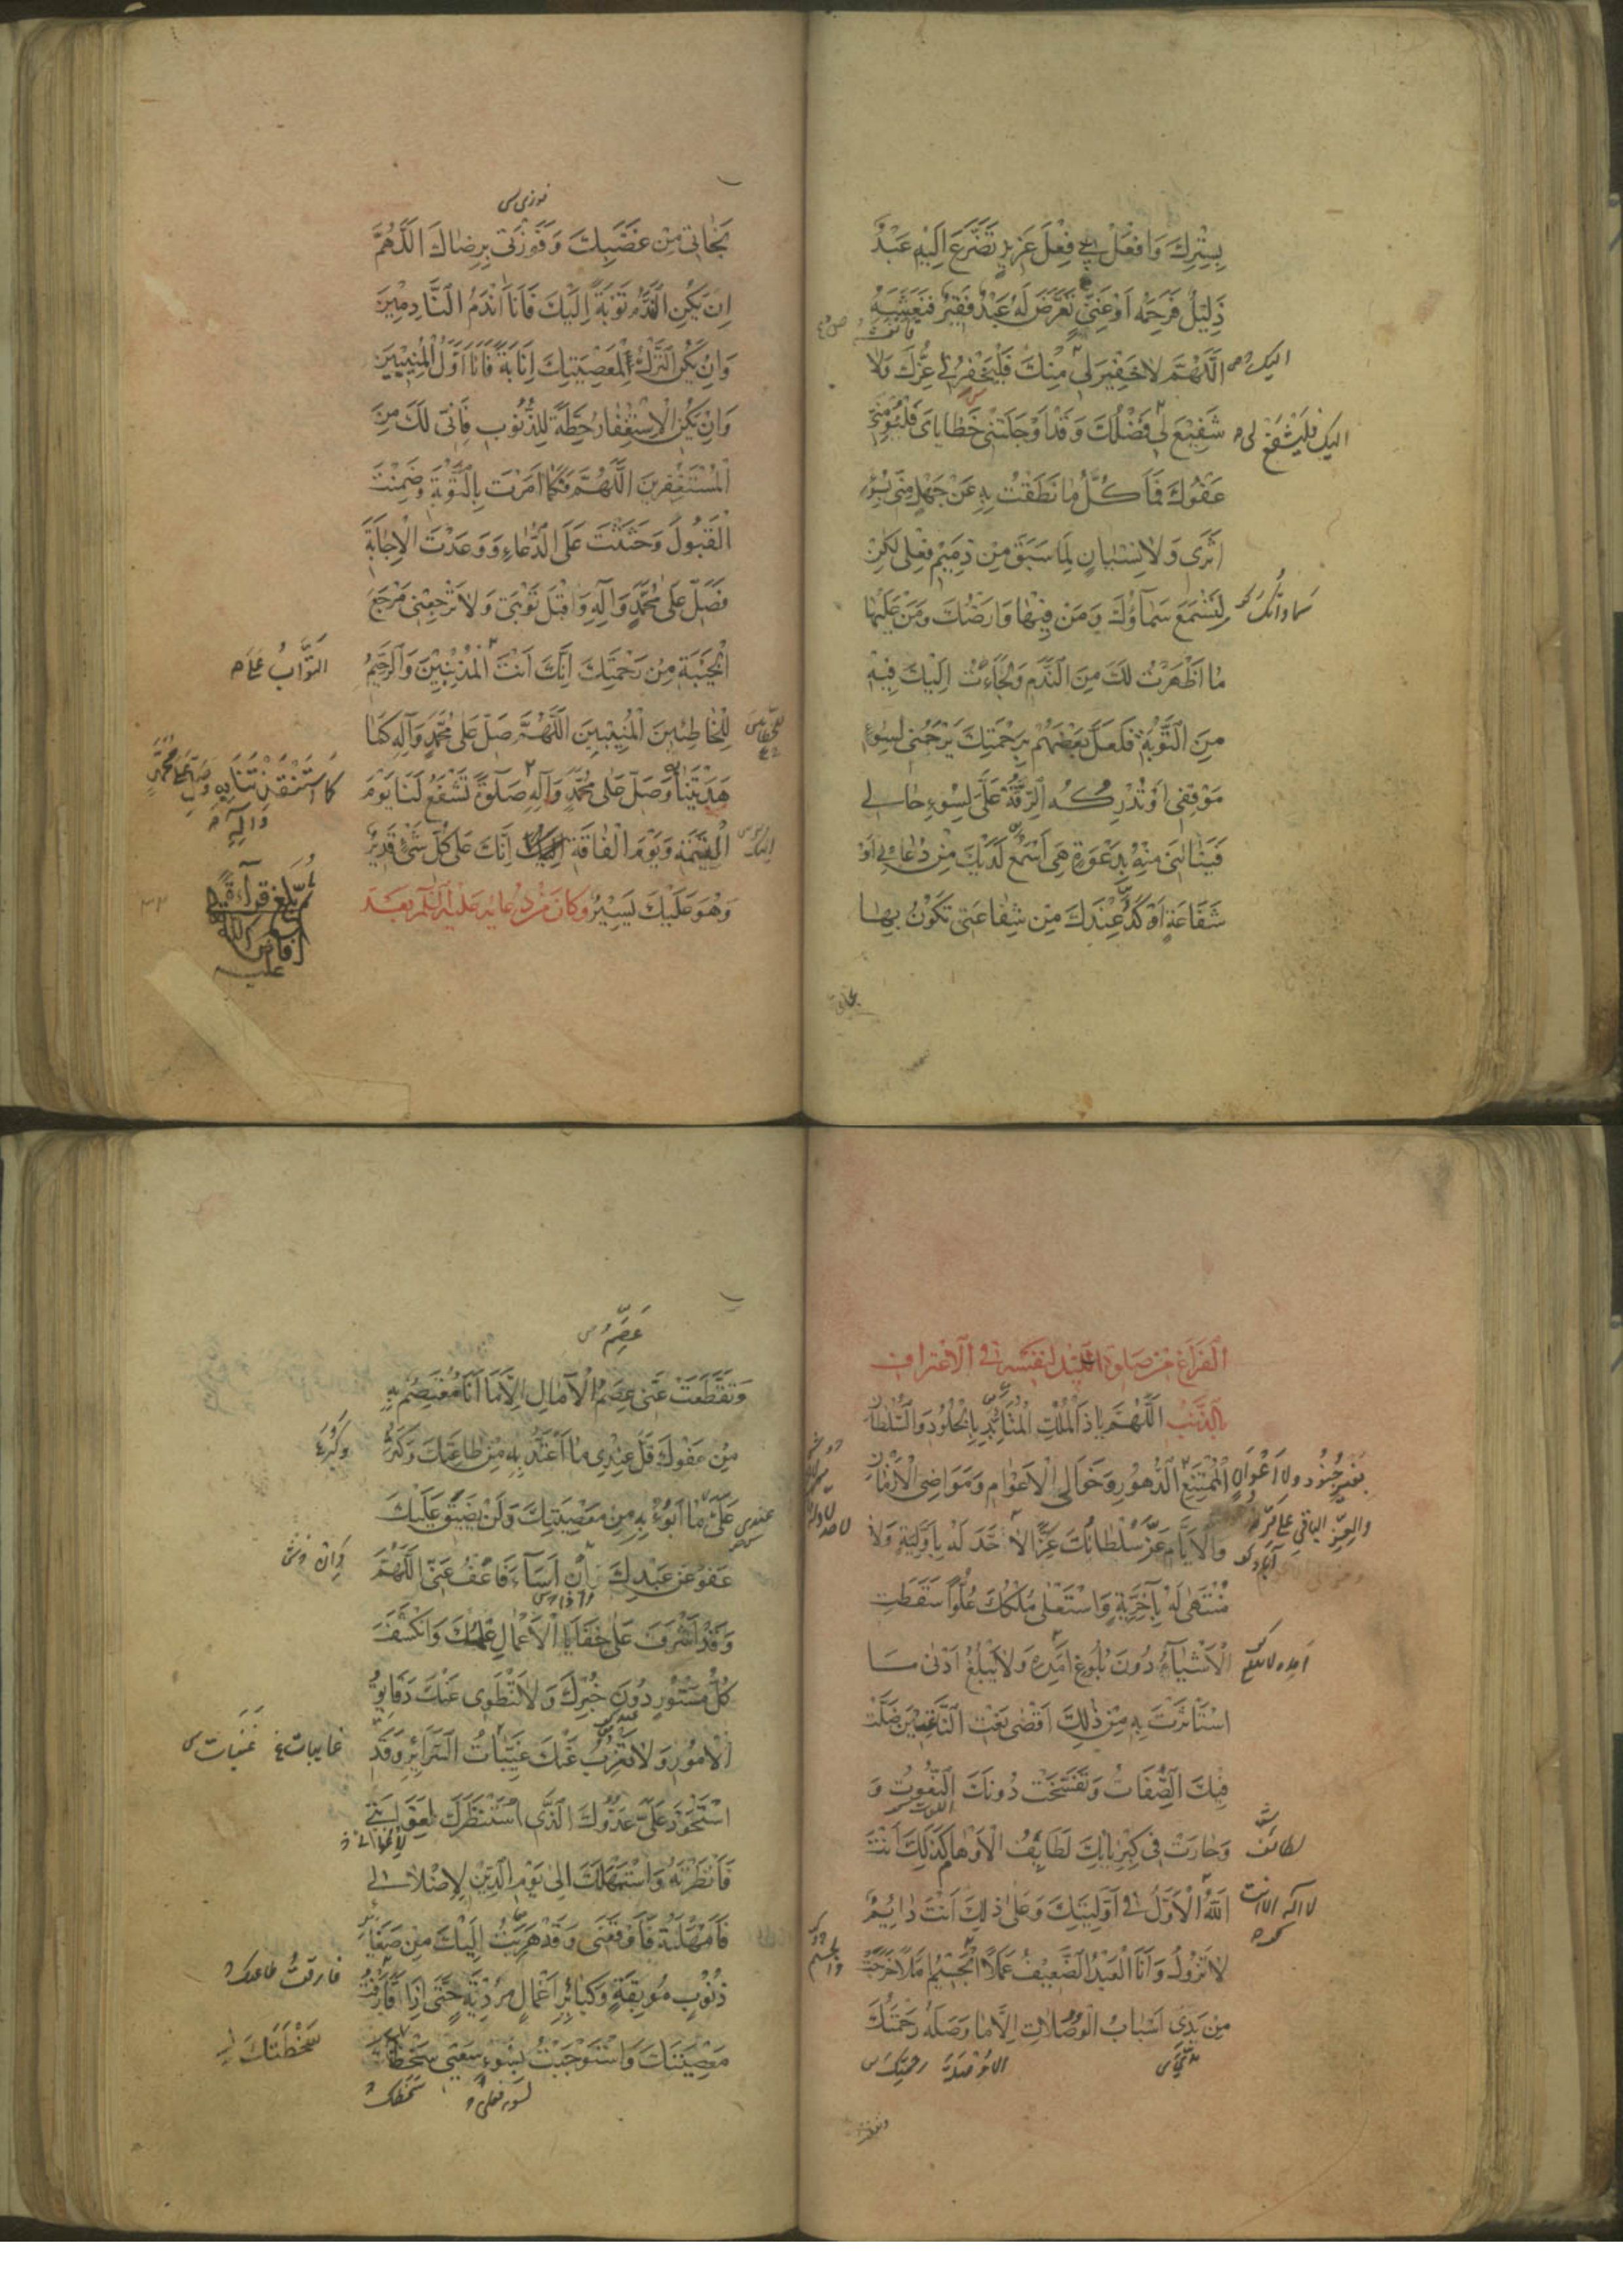 بِسِتْرِكَ وَافْعَلْ بِي فِعْلَ عَزِيزٍ تَضَرَّعَ اِلَيْهِ عَبْدٌ
ذَلِيلٌ فَرَحِمَهُ اَوْ غَنِيٍّ تَعَرَّضَ لَهُ عَبْدٌ فَقِيرٌ فَنَعَشَهُ
اَللّٰهُمَّ لَا خَفِيرَ لِي مِنْكَ فَلْيَخْفُرْنِي عِزُّكَ وَلَا
شَفِيعَ لِي فَضْلُكَ وَقَدْ اَوْجَلَتْنِي خَطَايَايَ فَلْيُؤْمِنِّي
عَفْوُكَ فَمَا كُلُّ مَا نَطَقْتُ بِهِ عَنْ جَهْلٍ مِنِّي بِسُوءِ
اَثَرِي وَلَا نِسْيَانٍ لِمَا سَبَقَ مِنْ ذَمِيمِ فِعْلِي لٰكِنْ
لِتَسْمَعَ سَمَاؤُكَ وَمَنْ فِيهَا وَاَرْضُكَ وَمَنْ عَلَيْهَا
مَا اَظْهَرْتُ لَكَ مِنَ النَّدَمِ وَلَجَأْتُ اِلَيْكَ فِيهِ
مِنَ التَّوْبَةِ فَلَعَلَّ بَعْضَهُمْ بِرَحْمَتِكَ يَرْحَمُنِي لِسُوءِ
مَوْقِفِي اَوْ تُدْرِكُهُ الرِّقَّةُ عَلَيَّ لِسُوءِ حَالِي
فَيَنَالَنِي مِنْهُ بِدَعْوَةٍ هِيَ اَسْمَعُ لَدَيْكَ مِنْ دُعَائِي اَوْ
شَفَاعَةٍ اَوْكَدُ عِنْدَكَ مِنْ شَفَاعَتِي تَكُونُ بِهَا
اليك
اليك فَلْيَشْفَعْ لي
سماواتك
نجاتي
فوزي س
نَجَاتِي مِنْ غَضَبِكَ وَفَوْزَتِي بِرِضَاكَ اَللّٰهُمَّ
اِنْ يَكُنِ النَّدَمُ تَوْبَةً اِلَيْكَ فَاَنَا اَنْدَمُ النَّادِمِينَ
وَاِنْ يَكُنِ التَّرْكُ لِمَعْصِيَتِكَ اِنَابَةً فَاَنَا اَوَّلُ الْمُنِيبِينَ
وَاِنْ يَكُنِ الْاِسْتِغْفَارُ حِطَّةً لِلذُّنُوبِ فَاِنِّي لَكَ مِنَ
الْمُسْتَغْفِرِينَ اَللّٰهُمَّ فَكَمَا اَمَرْتَ بِالتَّوْبَةِ وَضَمِنْتَ
الْقَبُولَ وَحَثَثْتَ عَلَى الدُّعَاءِ وَوَعَدْتَ الْاِجَابَةَ
فَصَلِّ عَلَى مُحَمَّدٍ وَآلِهِ وَاقْبَلْ تَوْبَتِي وَلَا تَرْجِعْنِي مَرْجِعَ
الْخَيْبَةِ مِنْ رَحْمَتِكَ اِنَّكَ اَنْتَ الْمُذْنِبِينَ وَالرَّحِيمُ
لِلْخَاطِئِينَ الْمُنِيبِينَ اَللّٰهُمَّ صَلِّ عَلَى مُحَمَّدٍ وَآلِهِ كَمَا
هَدَيْتَنَا وَصَلِّ عَلَى مُحَمَّدٍ وَآلِهِ صَلٰوةً تَشْفَعُ لَنَا يَوْمَ
الْقِيٰمَةِ وَيَوْمَ الْفَاقَةِ اِلَيْكَ اِنَّكَ عَلَى كُلِّ شَيْءٍ قَدِيرٌ
وَهُوَ عَلَيْكَ يَسِيرٌ وَكَانَ مِنْ دُعَائِهِ عَلَيْهِ السَّلَامُ بَعْدَ
التَّوَّابُ عَلَى
كَمَا اسْتَنْقَذْتَنَا بِهِ وصَلِّ عَلى مُحَمَّدٍ
وَآلِهِ
ثم بلغ قراءة
اَلْفَرَاغِ مِنْ صَلٰوةِ اللَّيْلِ لِنَفْسِهِ فِي الْاِعْتِرَافِ
بِالذَّنْبِ اَللّٰهُمَّ يَا ذَا الْمُلْكِ الْمُتَاَبِّدِ بِالْخُلُودِ وَالسُّلْطَانِ
الْمُمْتَنِعِ الدُّهُورِ وَخَوَالِي الْاَعْوَامِ وَمَوَاضِي الْاَزْمَانِ
وَالْاَيَّامِ عَزَّ سُلْطَانُكَ عِزًّا لَا حَدَّ لَهُ بِاَوَّلِيَّةٍ وَلَا
مُنْتَهَى لَهُ بِآخِرِيَّةٍ وَاسْتَعْلَى مُلْكُكَ عُلُوًّا سَقَطَتِ
الْاَشْيَاءُ دُونَ بُلُوغِ اَمَدِهِ وَلَا يَبْلُغُ اَدْنَى مَا
اسْتَأْثَرْتَ بِهِ مِنْ ذٰلِكَ اَقْصَى نَعْتِ النَّاعِتِينَ ضَلَّتْ
فِيكَ الصِّفَاتُ وَتَفَسَّخَتْ دُونَكَ النُّعُوتُ وَ
وَحَارَتْ فِي كِبْرِيَائِكَ لَطَائِفُ الْاَوْهَامِ كَذٰلِكَ اَنْتَ
اللّٰهُ الْاَوَّلُ فِي اَوَّلِيَّتِكَ وَعَلَى ذٰلِكَ اَنْتَ دَائِمٌ
لَا تَزُولُ وَاَنَا الْعَبْدُ الضَّعِيفُ عَمَلًا الْجَسِيمُ اَمَلًا خَرَجَتْ
مِنْ يَدِي اَسْبَابُ الْوُصُلَاتِ اِلَّا مَا وَصَلَهُ رَحْمَتُكَ
بغير جُنُود ولا اَعْوَانٍ
والعِزِّ الباقي على مَرِّ
لطائف
لا اله الا انت
رحمتك س
عِصَمُ س
وَتَقَطَّعَتْ عَنِّي عِصَمُ الْآمَالِ اِلَّا مَا اَنَا مُعْتَصِمٌ بِهِ
مِنْ عَفْوِكَ قَلَّ عِنْدِي مَا اَعْتَدُّ بِهِ مِنْ طَاعَتِكَ وَكَثُرَ
عَلَيَّ مَا اَبُوءُ بِهِ مِنْ مَعْصِيَتِكَ وَلَنْ يَضِيقَ عَلَيْكَ
عَفْوٌ عَنْ عَبْدِكَ وَاِنْ اَسَاءَ فَاعْفُ عَنِّي اَللّٰهُمَّ
وَقَدْ اَشْرَفَ عَلَى خَفَايَا الْاَعْمَالِ عِلْمُكَ وَانْكَشَفَ
كُلُّ مَسْتُورٍ دُونَ خُبْرِكَ وَلَا تَنْطَوِي عَنْكَ دَقَائِقُ
الْاُمُورِ وَلَا تَعْزُبُ عَنْكَ غَيِّبَاتُ السَّرَائِرِ وَقَدِ
اسْتَحْوَذَ عَلَيَّ عَدُوُّكَ الَّذِي اسْتَنْظَرَكَ لِغَوَايَتِي
فَاَنْظَرْتَهُ وَاسْتَمْهَلَكَ اِلَى يَوْمِ الدِّينِ لِاِضْلَالِي
فَاَمْهَلْتَهُ فَاَوْقَعَنِي وَقَدْ هَرَبْتُ اِلَيْكَ مِنْ صَغَائِرِ
ذُنُوبٍ مُوبِقَةٍ وَكَبَائِرِ اَعْمَالٍ مُرْدِيَةٍ حَتَّى اِذَا قَارَفْتُ
مَعْصِيَتَكَ وَاسْتَوْجَبْتُ بِسُوءِ سَعْيِي سَخَطَكَ
وكَثُرَ
عندي
غايبات
فارقت طاعتك
سَخْطَتَكَ
بسوء فعلي
سَخَطك